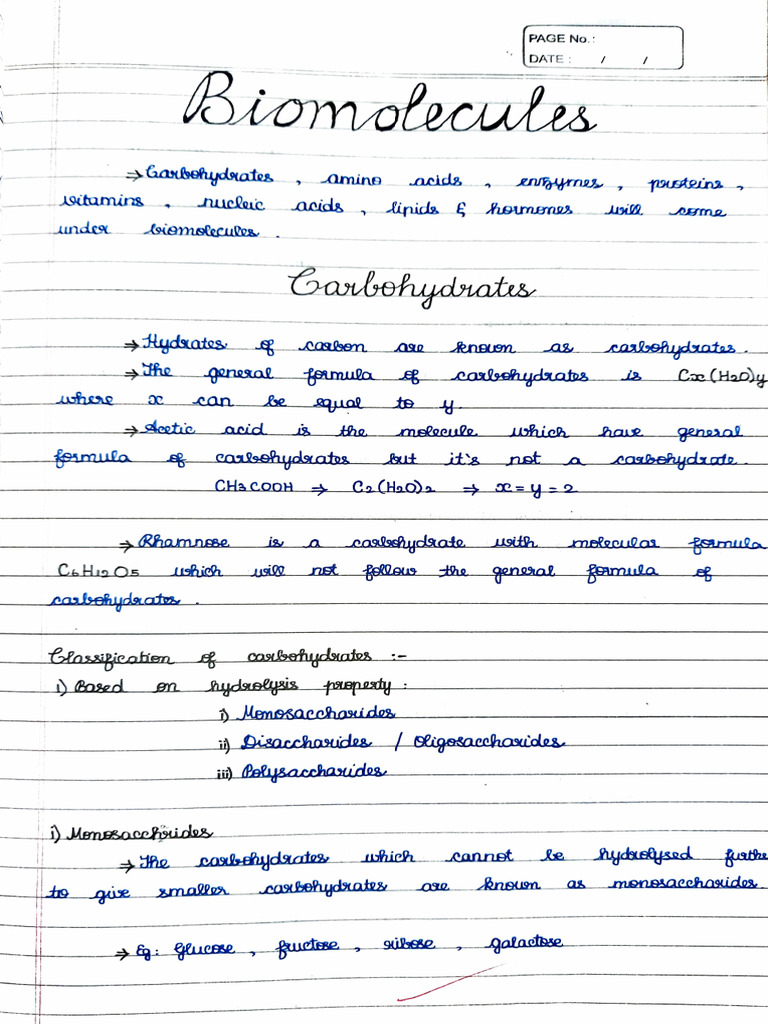 PAGE No.:
DATE : / /
Biomolecules
→ Carbohydrates , amino acids , enzymes , proteins ,
vitamins , nucleic acids , lipids & hormones will come
under biomolecules .
Carbohydrates
→ Hydrates of carbon are known as carbohydrates .
→ The general formula of carbohydrates is Cx(H2O)y
where x can be equal to y.
→ Acetic acid is the molecule which have general
formula of carbohydrates but it's not a carbohydrate.
CH3COOH → C2(H2O)2 → x=y=2
→ Rhamnose is a carbohydrate with molecular formula
C6H12O5 which will not follow the general formula of
carbohydrates .
Classification of carbohydrates :-
i) Based on hydrolysis property :
i) Monosaccharides
ii) Disaccharides / Oligosaccharides
iii) Polysaccharides
i) Monosacchirides
→ The carbohydrates which cannot be hydrolysed furthe
to give smaller carbohydrates are known as monosaccharides
→ Eg: Glucose , fructose , ribose , galactose